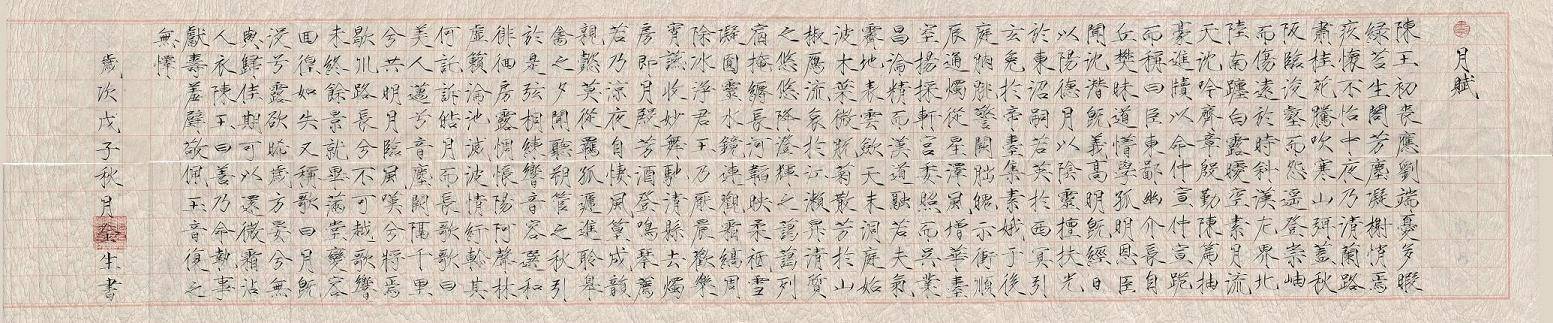 月賦
陳王初喪應劉端憂多暇
綠苔生閣芳塵凝榭悄焉
疚懷不怡中夜乃清蘭路
肅桂苑騰吹寒山弭蓋秋
阪臨浚壑而怨遙登崇岫
而傷遠於時斜漢左界北
陸南躔白露曖空素月流
天沈吟齊章殷勤陳篇抽
毫進牘以命仲宣仲宣跪
而稱曰臣東鄙幽介長自
丘樊昧道懵學孤明恩臣
聞沈潛既義高明既經日
以陽德月以陰靈擅扶光
於東沼嗣若英於西冥引
玄兔於帝臺集素娥于後
庭朒朓警闕朏魄示衝順
辰通燭從星澤風增華臺
室揚採軒宮委照而吳業
昌淪精而漢道融若夫氣
霽地表雲斂天末洞庭始
波木葉微脫菊散芳於山
椒雁流哀於江瀨昇清質
之悠悠降澄輝之藹藹列
宿掩縟長河韜映柔祇雪
凝圓靈水鏡連觀霜縞周
除冰淨君王乃厭晨歡樂
宵讌收妙舞馳清縣去燭
房即月殿芳酒登鳴琴薦
若乃涼夜自悽風篁成韻
親懿莫從羈孤遞進聆皋
禽之夕聞聽朔管之秋引
於是弦桐練響音容選和
徘徊房露惆悵陽阿聲林
虛籟淪池滅波情紆軫其
何託訴皓月而長歌歌曰
美人邁兮音塵闕隔千里
兮共明月臨風嘆兮將焉
歇川路長兮不可越歌響
未終餘景就畢滿堂變容
回徨如失又稱歌曰月既
沒兮露欲晞歲方晏兮無
與歸佳期可以還微霜沾
人衣陳王曰善乃命執事
獻壽羞璧敬佩玉音復之
無斁
歲次戊子秋月荃生書